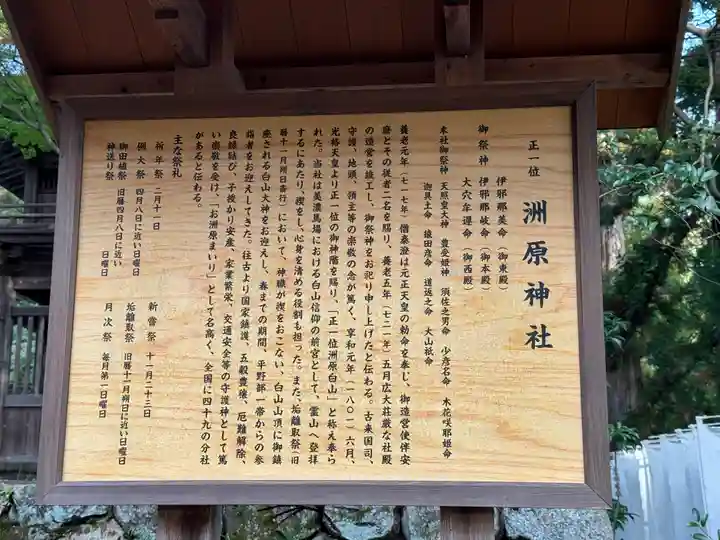 正一位
洲原神社
御祭神 伊邪那美命(御東殿)
伊邪那岐命(御本殿)
大穴牟遅命(御西殿)
末社御祭神 天照皇大神 豊受姫神 須佐之男命 少彦名命 木花咲耶姫命
迦具土命 猿田彦命 道返之命 大山祇命
養老元年(七一七年)僧泰澄は元正天皇の勅命を奉し、御造営使伴安
麿とその従者二名を賜り、養老五年(七二一年)五月広大荘厳な社殿
の造営を竣工し、御祭神をお祀り申し上げたと伝わる。古来国司、
守護、地頭、領主等の崇敬の念が篤く、享和元年(一八〇一)六月、
光格天皇より正一位の御神階を賜り、「正一位洲原白山」と称え奉ら
れた。当社は美濃馬場における白山信仰の前宮として、霊山へ登拝
するにあたり、禊をし、心身を清める役割も担った。また、垢離取祭(旧
暦十一月朔日斎行)において、神職が禊をおこない、白山山頂に御鎮
座される白山大神をお迎えし、春までの期間、平野部一帯からの参
詣者をお迎えしてきた。往古より国家鎮護、五穀豊穣、厄難解除、
良縁結び、子授かり安産、家業繁栄、交通安全等の守護神として篤
い崇敬を受け、「お洲原まいり」として名高く、全国に四十九の分社
があると伝わる。
主な祭礼
祈年祭 二月十一日
例大祭 四月八日に近い日曜日
御田植祭 旧暦四月八日に近い
神送り祭 日曜日
新嘗祭 十一月二十三日
垢離取祭 旧暦十一月朔日に近い日曜日
月次祭 毎月第一日曜日